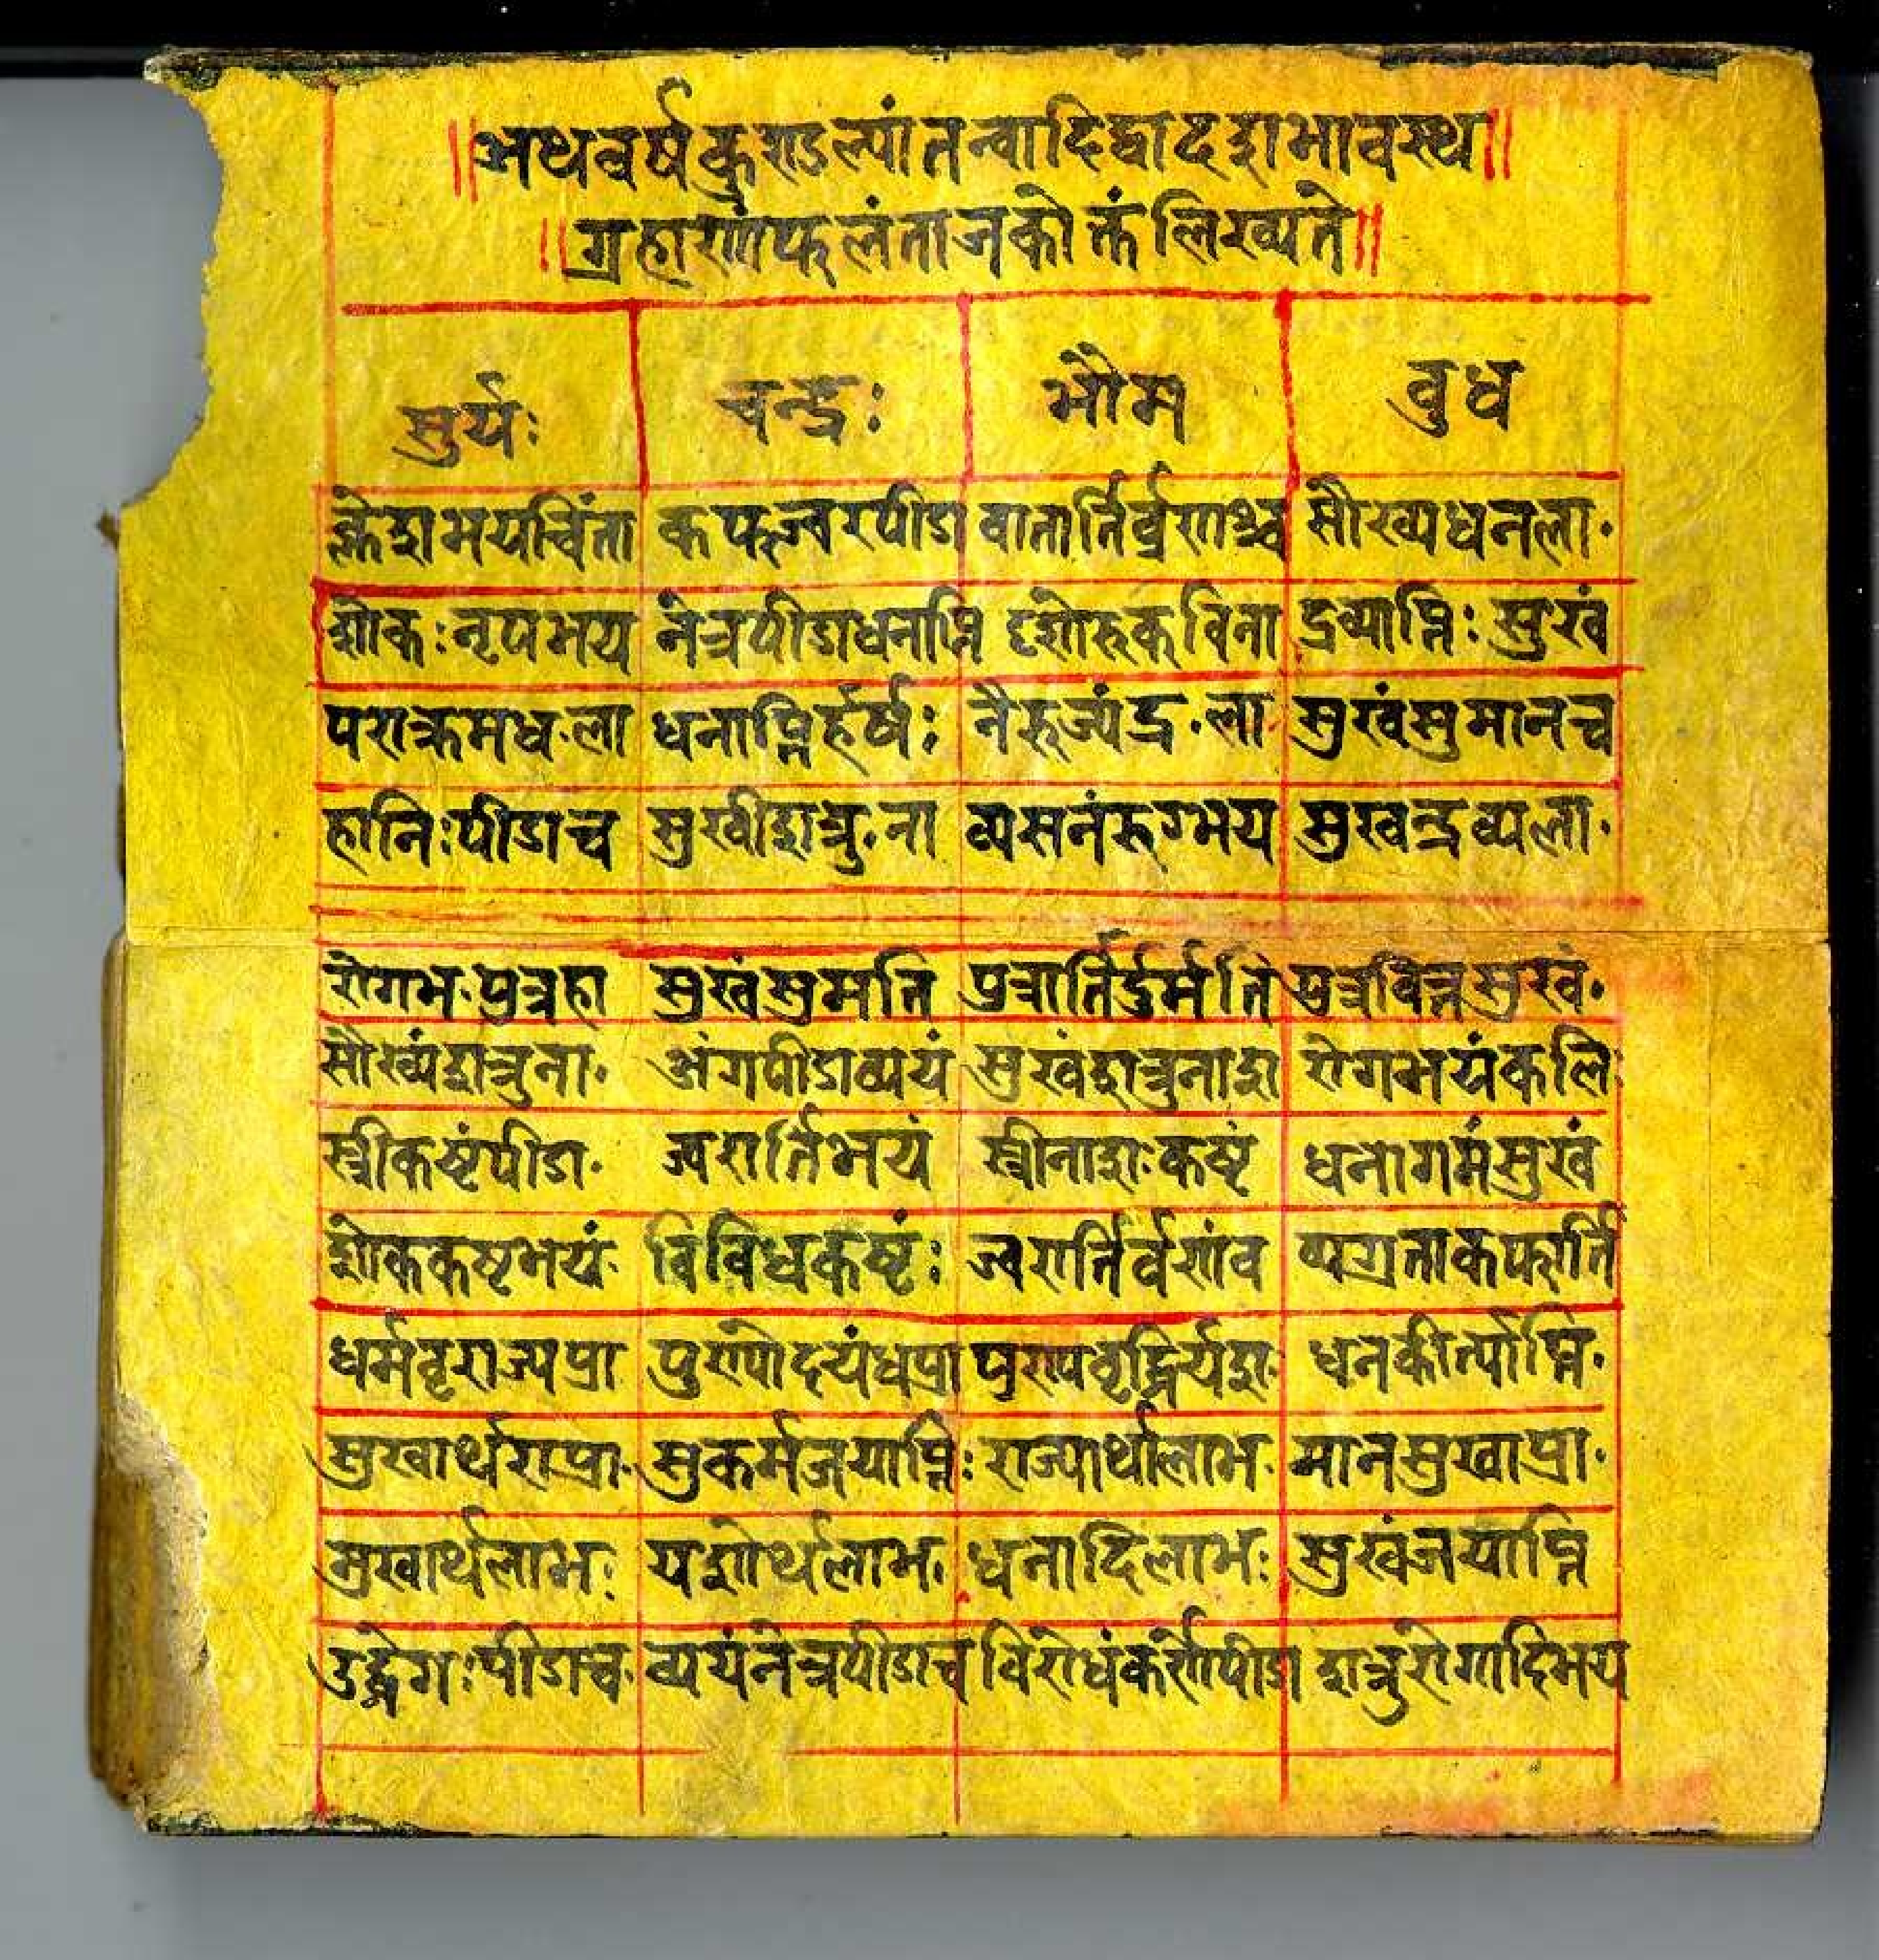 ॥अथवर्षकुण्डल्यांतन्वादिद्वादशभावस्थ॥
॥ग्रहाणांफलंताजकोक्तंलिख्यते॥
सुर्यः चन्द्रः भौम बुध
क्लेशभयचिंता कफज्वरपीडा वातार्तिर्व्रणश्च सौख्यधनला॰
शोकःनृपभय नेत्रपीडाधनाप्ति दृशोरुक्विना द्रव्याप्तिःसुखं
पराक्रमध॰ला धनाप्तिर्हर्षः नैरुज्यंद्र॰ला सुखंसुमानच
हानिःपीडाच सुखीशत्रु॰ना व्यसनंरुग्भय सुखन्द्रव्यला॰
रोगभ॰पुत्रहा सुखंसुमति पुत्रार्तिर्दुर्मति पुत्रवित्तसुखं॰
सौख्यंशत्रुना॰ अंगपीडाव्ययं सुखंशत्रुनाश रोगभयंकलि
स्त्रीकष्टंपीडा॰ ज्वरार्तिभयं स्त्रीनाशःकष्टं धनागमंसुखं
शोककष्टभयं॰ विविधकष्टंः ज्वरार्तिर्व्रणंव व्यग्रताकफार्ति
धर्मवृराज्यप्रा पुण्योदयंधप्रा पुण्यवृद्धिर्यश॰ धनकीर्त्याप्ति॰
सुखार्थराप्रा॰ सुकर्मजयाप्तिः राज्यार्थालाभ॰ मानसुखाप्रा॰
सुखार्थलाभः यशोर्थलाभ॰ धनादिलाभः सुखंजयाप्ति
उद्वेगःपीडाच॰ व्ययंनेत्रपीडाच विरोधंकर्णेपीडा शत्रुरोगादिभय